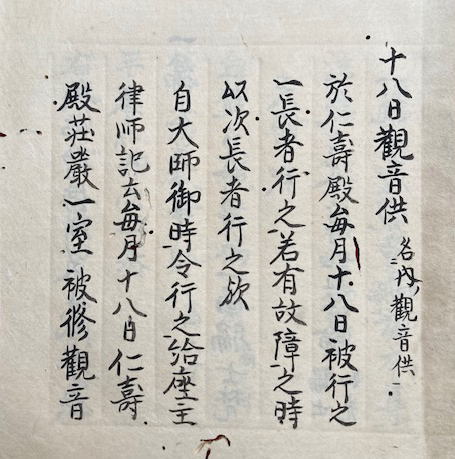 十八日觀音供 名內觀音供
於仁壽殿每月十八日被行之
一長者行之若有故障之時
以次長者行之欤
自大師御時令行之給座主
律師記云每月十八日仁壽
殿莊嚴一室被修觀音